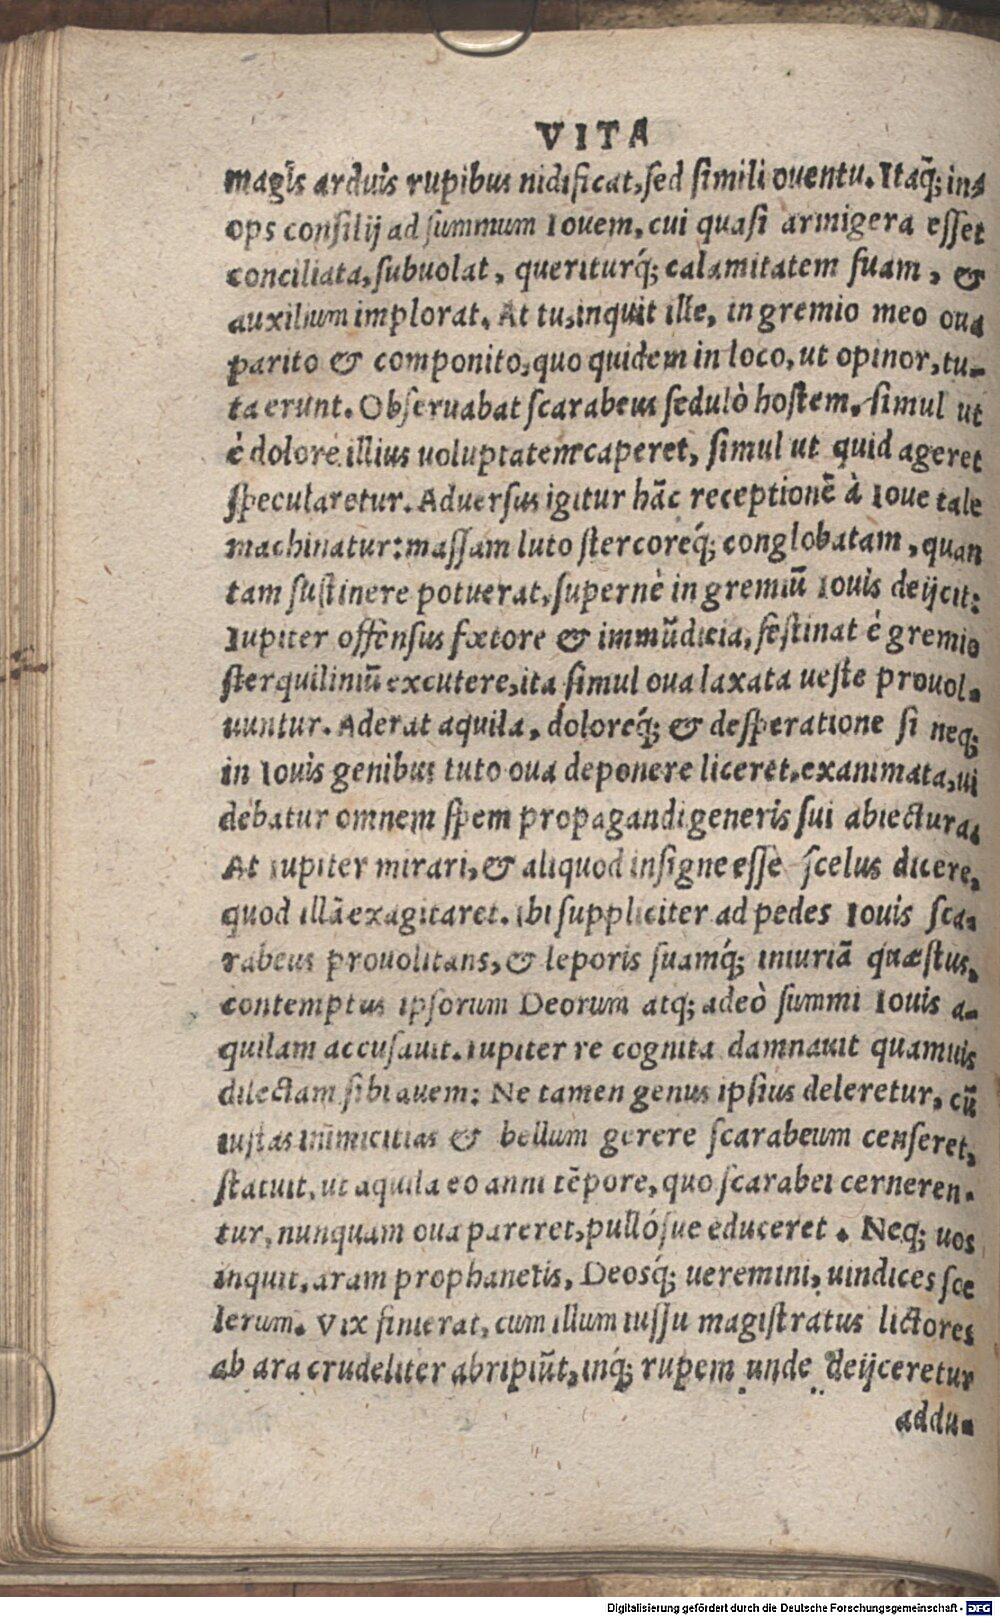 VITA
magis arduis rupibus nidificat, sed simili ouentu. Itaq́; in-
ops consilij ad summum Iouem, cui quasi armigera esset
conciliata, subuolat, queriturq́; calamitatem suam, &
auxilium implorat. At tu, inquit ille, in gremio meo oua
parito & componito, quo quidem in loco, ut opinor, tu-
ta erunt. Obseruabat scarabeus sedulò hostem, simul ut
è dolore illius uoluptatem caperet, simul ut quid ageret
specularetur. Aduersus igitur hãc receptionẽ à Ioue tale
machinatur: massam luto stercoreq́; conglobatam, quan
tam sustinere potuerat, supernè in gremiũ Iouis deijcit:
Iupiter offensus fœtore & immũdicia, festinat è gremio
sterquiliniũ excutere, ita simul oua laxata ueste prouol-
uuntur. Aderat aquila, doloreq́; & desperatione si neq;
in Iouis genibus tuto oua deponere liceret, exanimata, ui
debatur omnem spem propagandi generis sui abiectura.
At Iupiter mirari, & aliquod insigne esse scelus dicere,
quod illã exagitaret. Ibi suppliciter ad pedes Iouis sca-
rabeus prouolitans, & leporis suamq́; iniuriã quæstus,
contemptus ipsorum Deorum atq; adeò summi Iouis a-
quilam accusauit. Iupiter re cognita damnauit quamuis
dilectam sibi auem: Ne tamen genus ipsius deleretur, cũ
iustas inimicitias & bellum gerere scarabeum censeret,
statuit, ut aquila eo anni tẽpore, quo scarabei cerneren-
tur, nunquam oua pareret, pullósue educeret. Neq; uos
inquit, aram prophanetis, Deosq́; ueremini, uindices sce
lerum. Vix finierat, cum illum iussu magistratus lictores
ab ara crudeliter abripiũt, inq́; rupem unde deijceretur
addu-
Digitalisierung gefördert durch die Deutsche Forschungsgemeinschaft - DFG